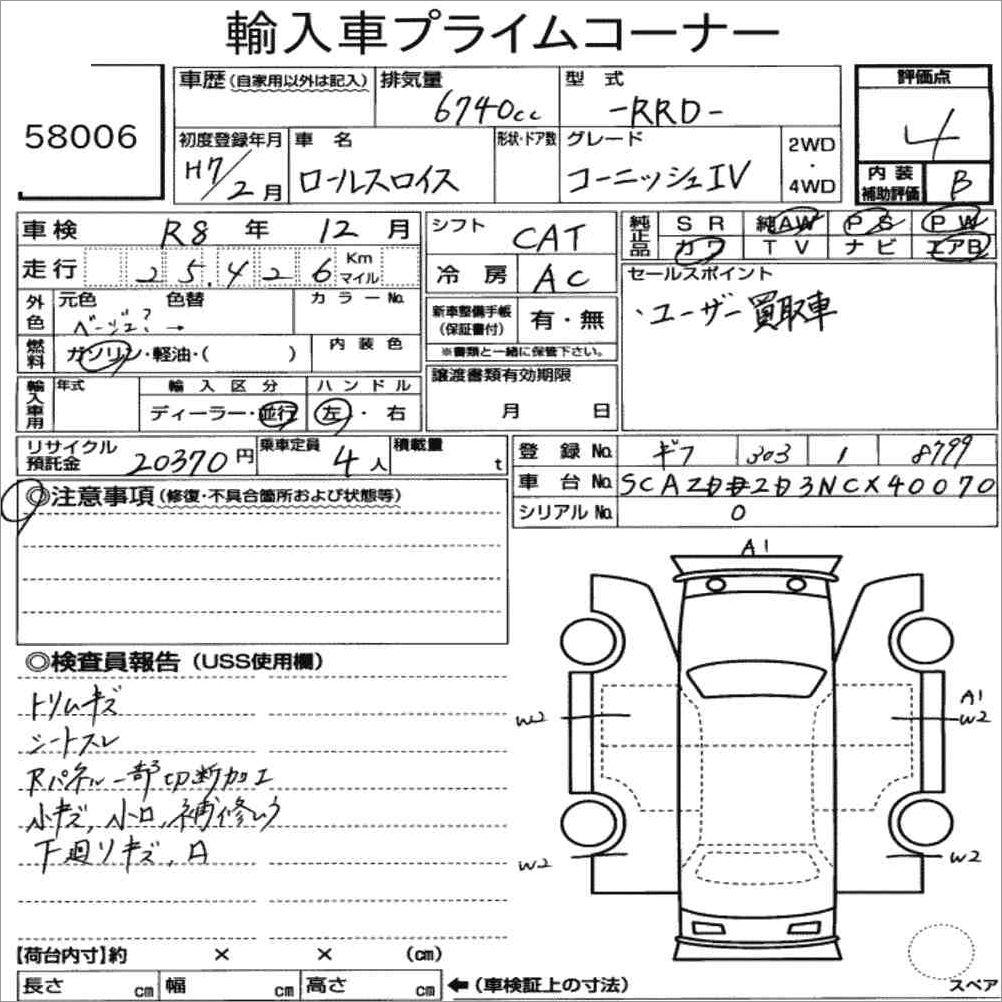 輸入車プライムコーナー
58006
車歴(自家用以外は記入) 排気量 6740cc 型式 -RRD- 評価点 4
初度登録年月 H7/2月 車名 ロールスロイス 形状・ドア数 グレード コーニッシュIV 2WD・4WD 内装補助評価 B
車検 R8年 12月 シフト CAT 純正品 SR 純AW PS PW
走行 25,426 Km マイル 冷房 AC カワ TV ナビ エアB
外色 元色 ベージュ? → 色替 カラーNo. 新車整備手帳(保証書付) 有・無 セールスポイント
・ユーザー買取車
燃料 ガソリン・軽油・( ) 内装色 ※書類と一緒に保管下さい。
輸入車用 年式 輸入区分 ディーラー・並行 ハンドル 左・右 譲渡書類有効期限 月 日
リサイクル預託金 20370円 乗車定員 4人 積載量 t 登録No. ギフ 303 1 8799
車台No. SCAZD02D3NCX40070
シリアルNo. 0
◎注意事項(修復・不具合箇所および状態等)
A1
◎検査員報告(USS使用欄)
トリムキズ
シートスレ
Rパネル一部切断加工
小キズ,小凹,補修ムラ
下廻りキズ,凹
W2
A1
W2
W2
W2
【荷台内寸】約 × × (cm)
長さ cm 幅 cm 高さ cm ←(車検証上の寸法)
スペア